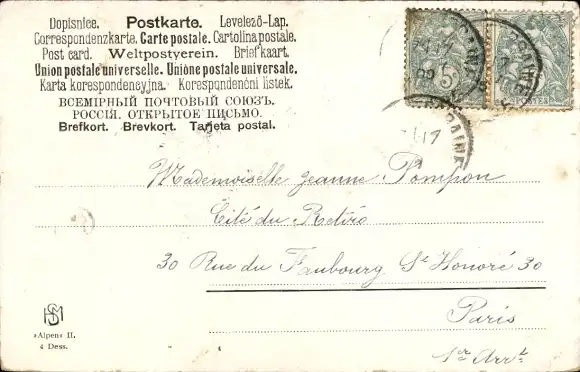 Dopisnice. Postkarte. Levelező-Lap.
Correspondenzkarte. Carte postale. Cartolina postale.
Post card. Weltpostverein. Briefkaart.
Union postale universelle. Unione postale universale.
Karta korespondencyjna. Korespondenčni listek.
ВСЕМІРНЫЙ ПОЧТОВЫЙ СОЮЗЪ.
РОССІЯ. ОТКРЫТОЕ ПИСЬМО.
Brefkort. Brevkort. Tarjeta postal.
5
POSTES
Mademoiselle Jeanne Pompon
Cité du Retiro
30 Rue du Faubourg St Honoré 30
Paris
»Alpen« II.
4 Dess.